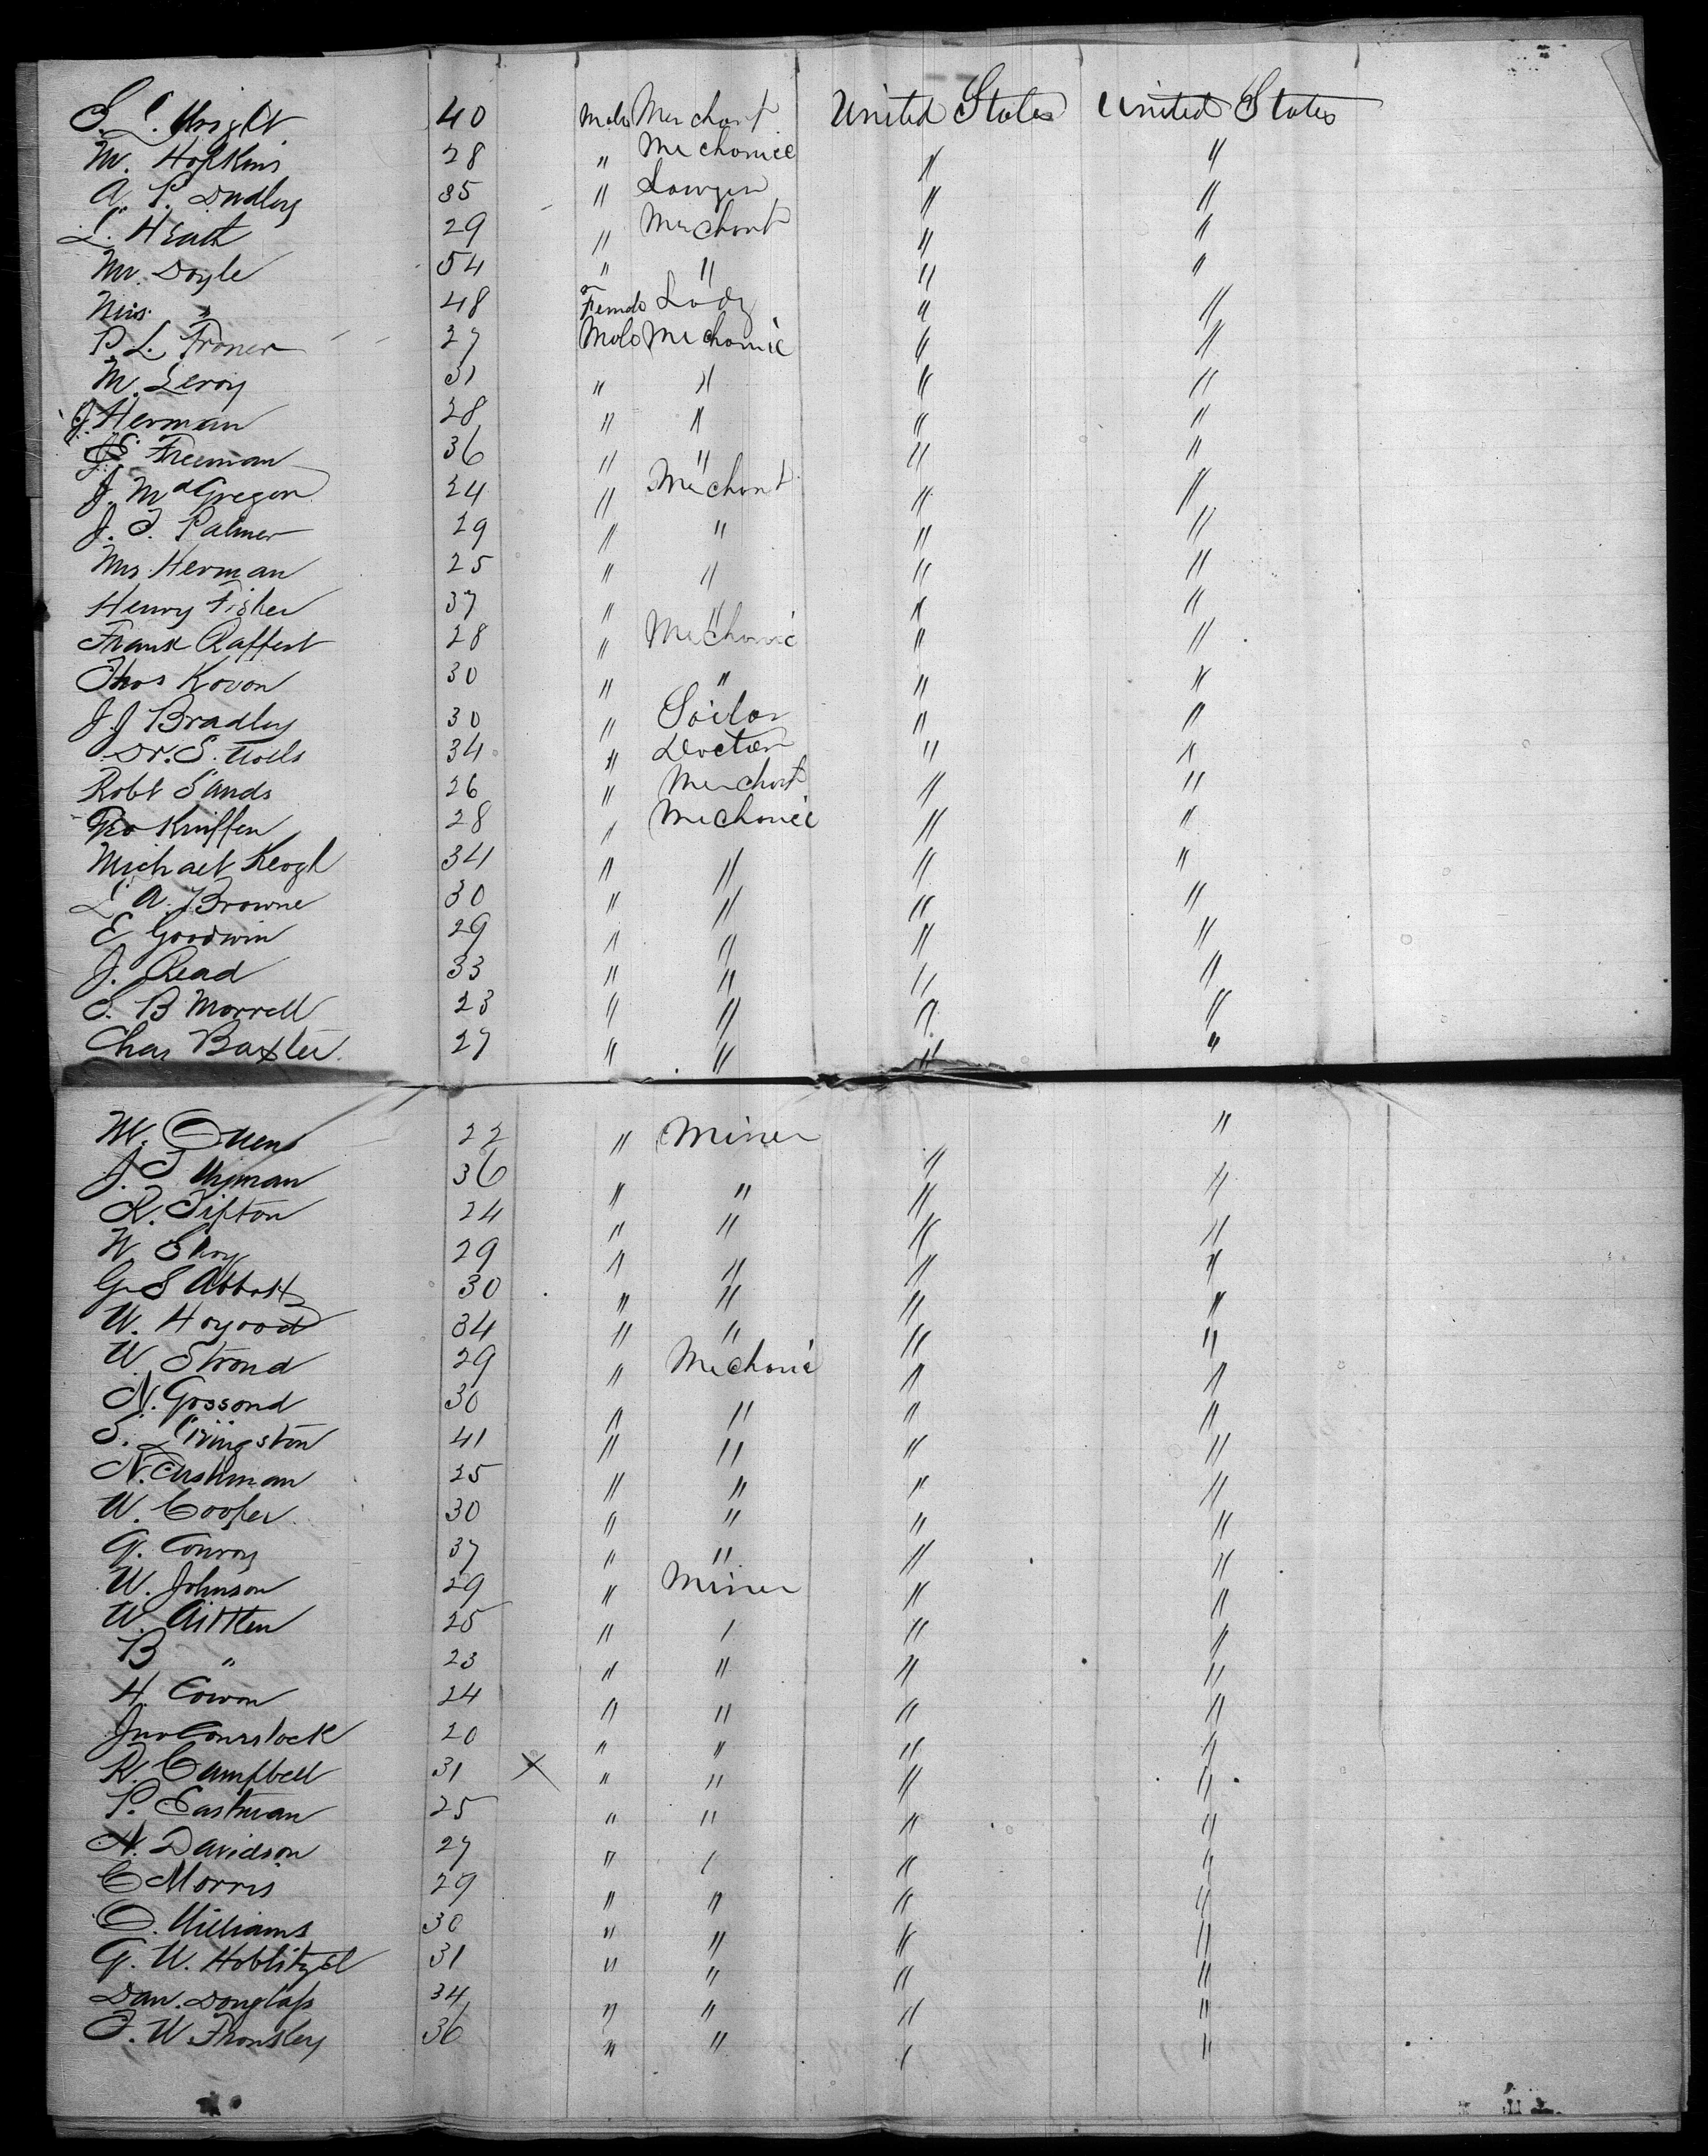 S. L. Wright 40 Male Merchant United States United States
M. Hopkins 28 " Mechanic " "
A. P. Dudley 35 " Lawyer " "
L. Heath 29 " Merchant " "
Mr. Doyle 54 " " " "
Mrs. " 48 Female Lady " "
P. L. 27 Male Mechanic " "
M. Leroy 31 " " " "
J. Herman 28 " " " "
J. E. Freeman 36 " " " "
J. McGregor 24 " Merchant " "
J. T. Palmer 29 " " " "
Mrs Herman 25 " " " "
Henry Fisher 37 " " " "
Frank Raffert 28 " Mechanic " "
Thos Kovon 30 " " " "
J J Bradley 30 " Sailor " "
Dr. S. 34 " Doctor " "
Robt Sands 26 " Merchant " "
Geo Kniffen 28 " Mechanic " "
Michael Keogh 34 " " " "
L A. Browne 30 " " " "
E Goodwin 29 " " " "
J. Read 33 " " " "
S. B Morrell 23 " " " "
Chas Baxter 27 " " " "
W. Owens 22 " Miner " "
J. T 36 " " " "
R. Tipton 24 " " " "
W. 29 " " " "
G S Abbott 30 " " " "
W. Hogood 34 " " " "
W. Strond 29 " Mechanic " "
N. Gossond 30 " " " "
S. Livingston 41 " " " "
N. Cushman 25 " " " "
W. Cooper 30 " " " "
G. Conroy 37 " " " "
W. Johnson 29 " Miner " "
W. Aitken 25 " " " "
B " 23 " " " "
H. Cowan 24 " " " "
Jno Comstock 20 " " " "
R. Campbell 31 X " " " "
P. Eastman 25 " " " "
N. Davidson 27 " " " "
C Morris 29 " " " "
O. Williams 30 " " " "
G. W. Hoblitzel 31 " " " "
Dan. Douglass 34 " " " "
F. W. 36 " " " "